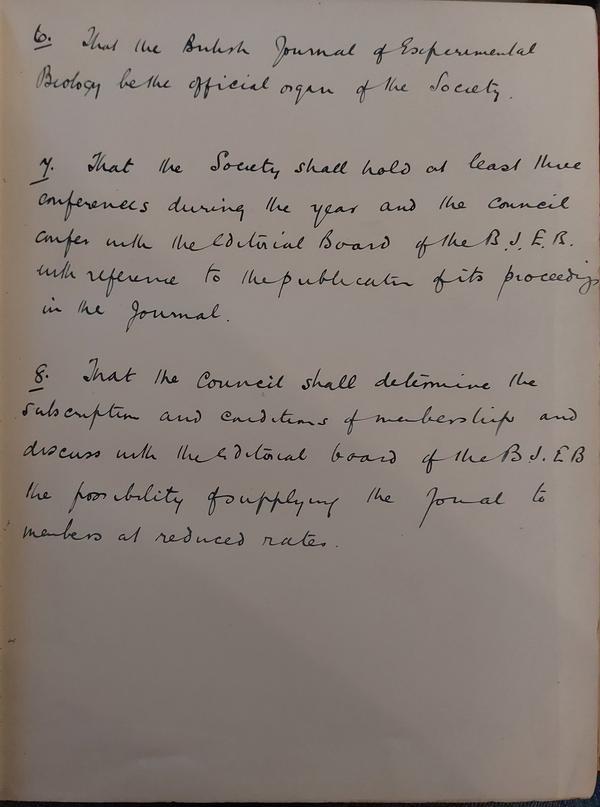 6. That the British Journal of Experimental
Biology be the official organ of the Society.
7. That the Society shall hold at least three
conferences during the year and the council
confer with the Editorial Board of the B.J.E.B.
with reference to the publication of its proceedings
in the Journal.
8. That the Council shall determine the
subscription and conditions of membership and
discuss with the Editorial board of the B.J.E.B
the possibility of supplying the Jounal to
members at reduced rates.